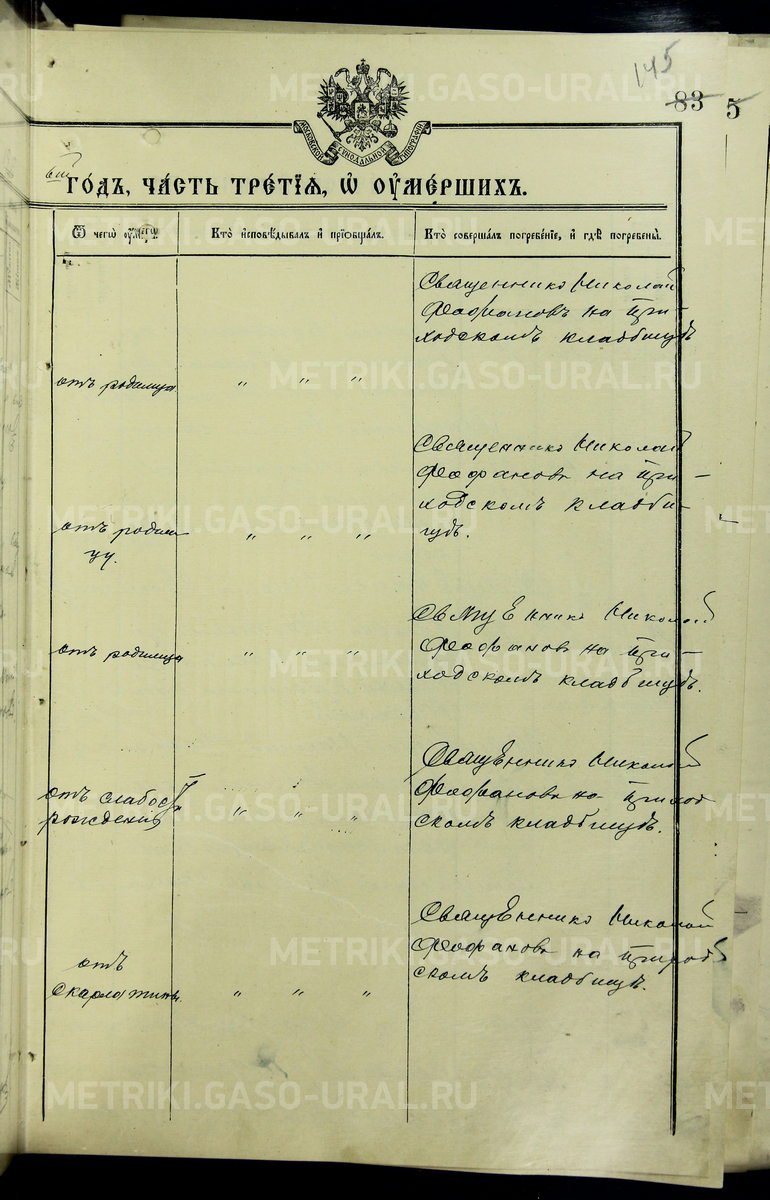 145
83 5
МОСКОВСКОЙ СѴНОДАЛЬНОЙ ТИПОГРАФІИ
ГО́ДЪ, ЧА́СТЬ ТРЕ́ТІѦ, Ѡ҆ ОУ҆МЕ́РШИХЪ.
Ѿ чегѡ̀ оу҆́мерꙿ
Кто̀ и҆сповѣ́дывалъ и҆ прїѡбща́лъ.
Кто̀ соверша́лъ погребе́нїе, и҆ гдѣ̀ погребены̀.
Священникъ Николай
Феофановъ на при-
ходскомъ кладбищѣ
отъ родимца " " "
Священникъ Николай
Феофановъ на при-
ходскомъ кладби-
щѣ.
отъ родим
цу. " " "
Священникъ Николай
Феофановъ на при-
ходскомъ кладбищѣ.
отъ родимца " " "
Священникъ Николай
Феофановъ на приход
скомъ кладбищѣ.
отъ слабости
рожденія " " "
Священникъ Николай
Феофановъ на приход
скомъ кладбищѣ.
отъ
скарлатины. " " "
METRIKI.GASO-URAL.RU